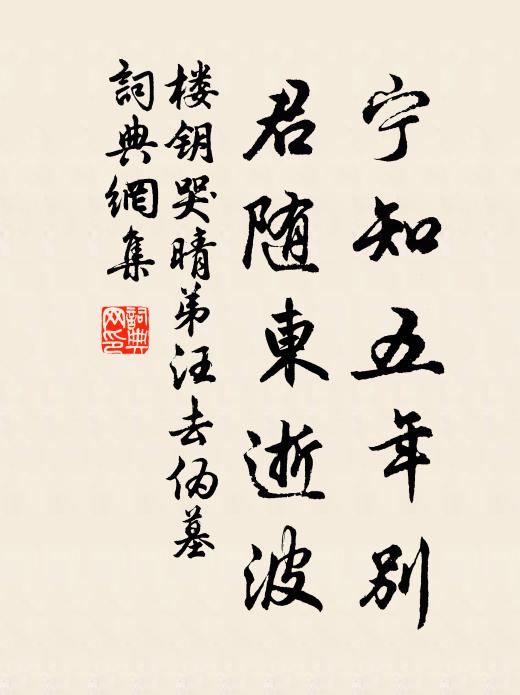 宁知五年别
君随東逝波
楼钥哭晴弟汪去伪墓
詞典網集
詞典网印